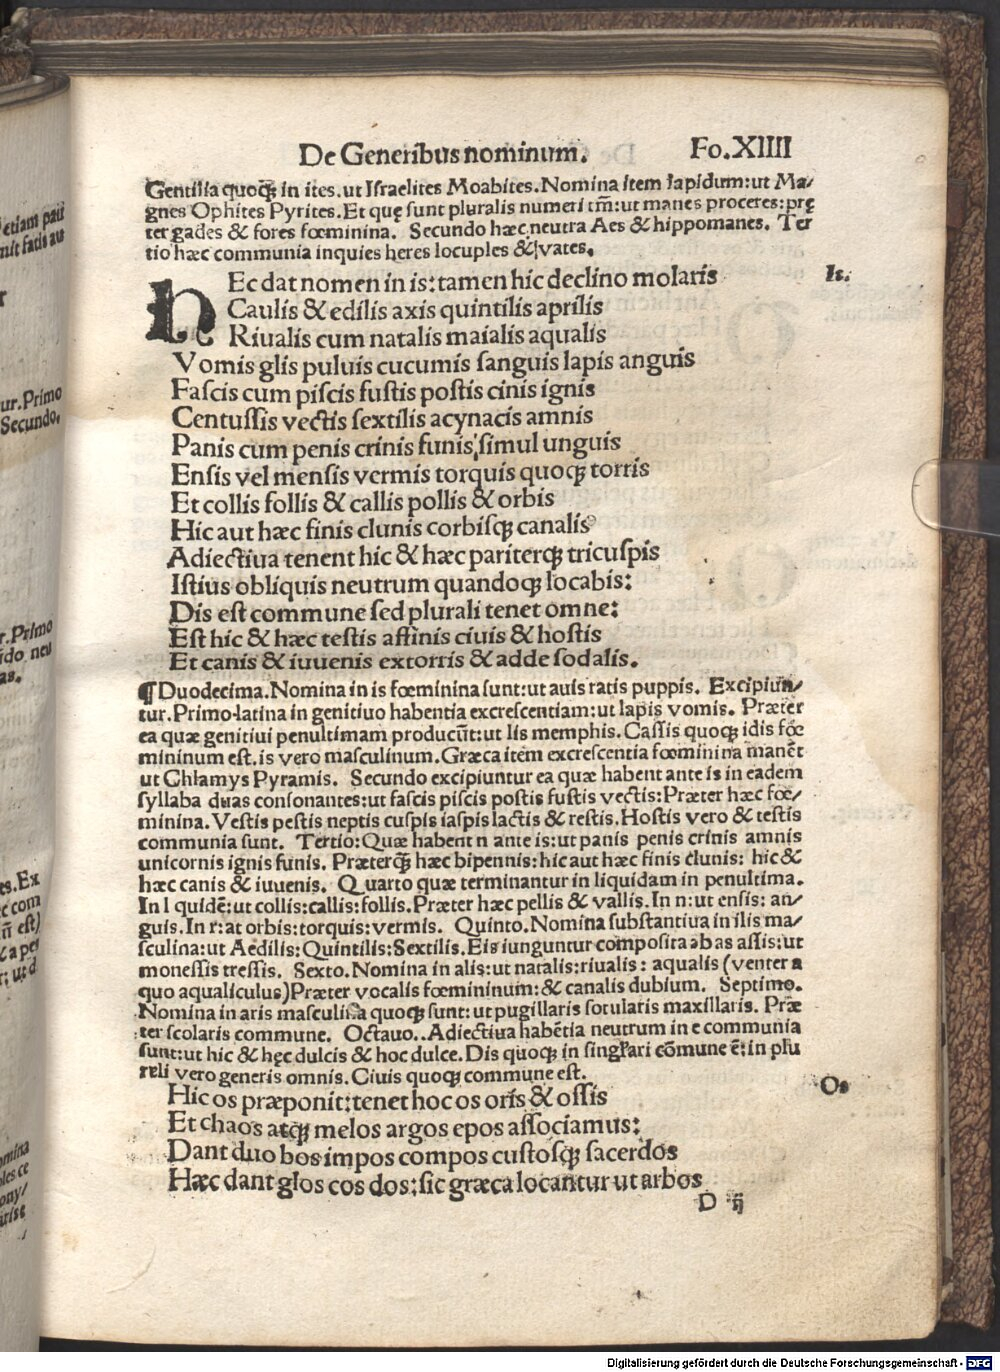 De Generibus nominum. Fo.XIIII
Gentilia quoqꝫ in ites.ut Iſraelites Moabites.Nomina item lapidum:ut Ma⸗
gnes Ophites Pyrites.Et quę ſunt pluralis numeri tm̃:ut manes proceres:prę
ter gades & fores fœminina. Secundo hæc neutra Aes & hippomanes. Ter
tio hæc communia inquies heres locuples & vates.
HEc dat nomen in is:tamen hic declino molaris Is.
Caulis & edilis axis quintilis aprilis
Riualis cum natalis maialis aqualis
Vomis glis puluis cucumis ſanguis lapis anguis
Faſcis cum piſcis fuſtis poſtis cinis ignis
Centuſſis vectis ſextilis acynacis amnis
Panis cum penis crinis funis ſimul unguis
Enſis vel menſis vermis torquis quoqꝫ torris
Et collis follis & callis pollis & orbis
Hic aut hæc finis clunis corbiſqꝫ canalis
Adiectiua tenent hic & hæc pariterqꝫ tricuſpis
Iſtius obliquis neutrum quandoqꝫ locabis:
Dis eſt commune ſed plurali tenet omne:
Eſt hic & hæc teſtis affinis ciuis & hoſtis
Et canis & iuuenis extorris & adde ſodalis.
¶Duodecima.Nomina in is fœminina ſunt:ut auis ratis puppis. Excipiun⸗
tur.Primo latina in genitiuo habentia excreſcentiam:ut lapis vomis. Præter
ea quæ genitiui penultimam producũt:ut lis memphis.Caſſis quoqꝫ idis fœ
mininum eſt.is vero maſculinum.Græca item excreſcentia fœminina manẽt
ut Chlamys Pyramis. Secundo excipiuntur ea quæ habent ante is in eadem
ſyllaba duas conſonantes:ut faſcis piſcis poſtis fuſtis vectis:Præter hæc fœ⸗
minina.Veſtis peſtis neptis cuſpis iaſpis lactis & reſtis.Hoſtis vero & teſtis
communia ſunt. Tertio:Quæ habent n ante is:ut panis penis crinis amnis
unicornis ignis funis. Præterqꝫ̃ hæc bipennis:hic aut hæc finis clunis: hic &
hæc canis & iuuenis. Quarto quæ terminantur in liquidam in penultima.
In l quidẽ:ut collis:callis:follis.Præter hæc pellis & vallis.In n:ut enſis: an⸗
guis.In r:at orbis:torquis:vermis. Quinto.Nomina ſubſtantiua in ilis ma⸗
ſculina:ut Aedilis:Quintilis:Sextilis.Eis iunguntur compoſita ab as aſſis:ut
moneſſis treſſis. Sexto.Nomina in alis:ut natalis:riualis: aqualis (venter a
quo aqualiculus)Præter vocalis fœmininum:& canalis dubium. Septimo.
Nomina in aris maſculina quoqꝫ ſunt:ut pugillaris ſotularis maxillaris. Præ
ter ſcolaris commune. Octauo..Adiectiua habẽtia neutrum in e communia
ſunt:ut hic & hęc dulcis & hoc dulce.Dis quoqꝫ in ſingl̃ari cõmune ẽ:in plu
reli vero generis omnis.Ciuis quoqꝫ commune eſt.
Hic os præponit:tenet hoc os oris & oſſis Os
Et chaos atqꝫ melos argos epos aſſociamus:
Dant duo bos impos compos cuſtoſqꝫ ſacerdos
Hæc dant glos cos dos:ſic græca locantur ut arbos
D ij
Digitalisierung gefördert durch die Deutsche Forschungsgemeinschaft - DFG